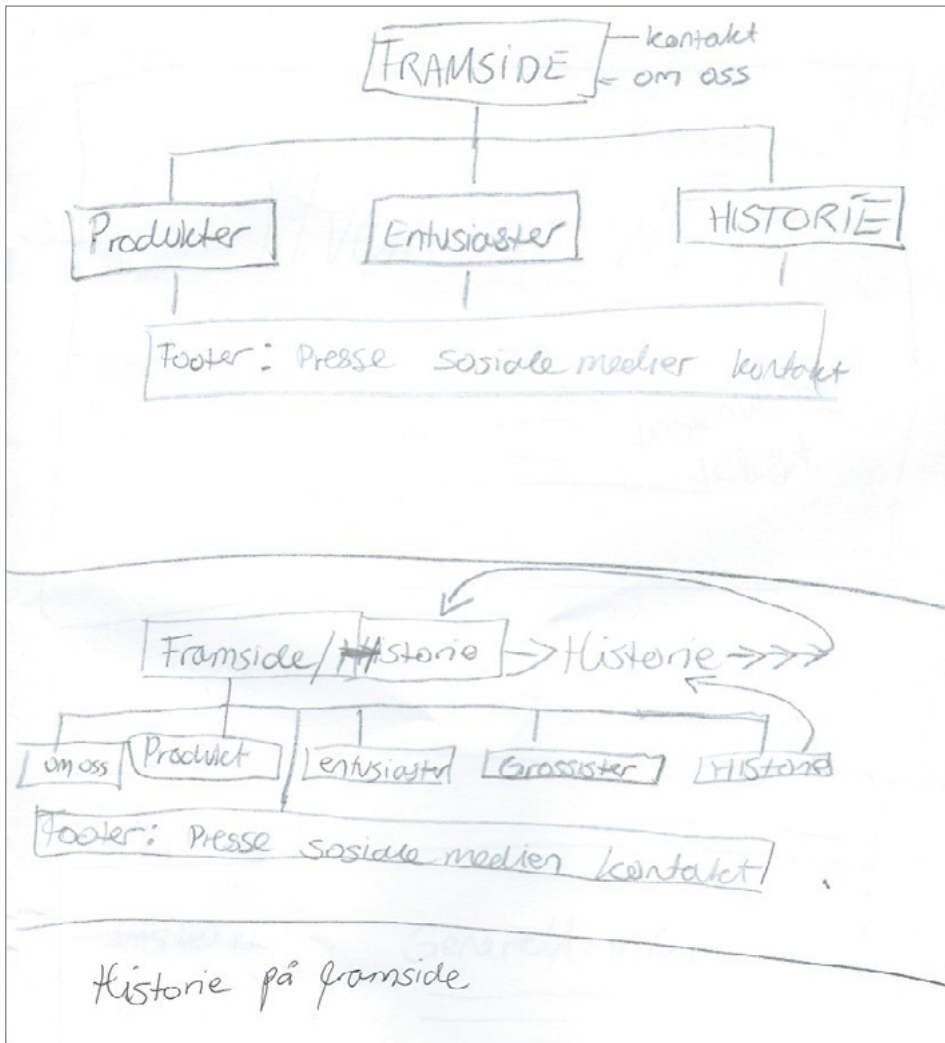 FRAMSIDE
kontakt
om oss
Produkter
Entusiaster
HISTORIE
Footer: Presse sosiale medier kontakt
Framside/Historie
Historie
om oss
Produkt
entusiaster
Grossister
Historie
Footer: Presse sosiale medier kontakt
Historie på framside